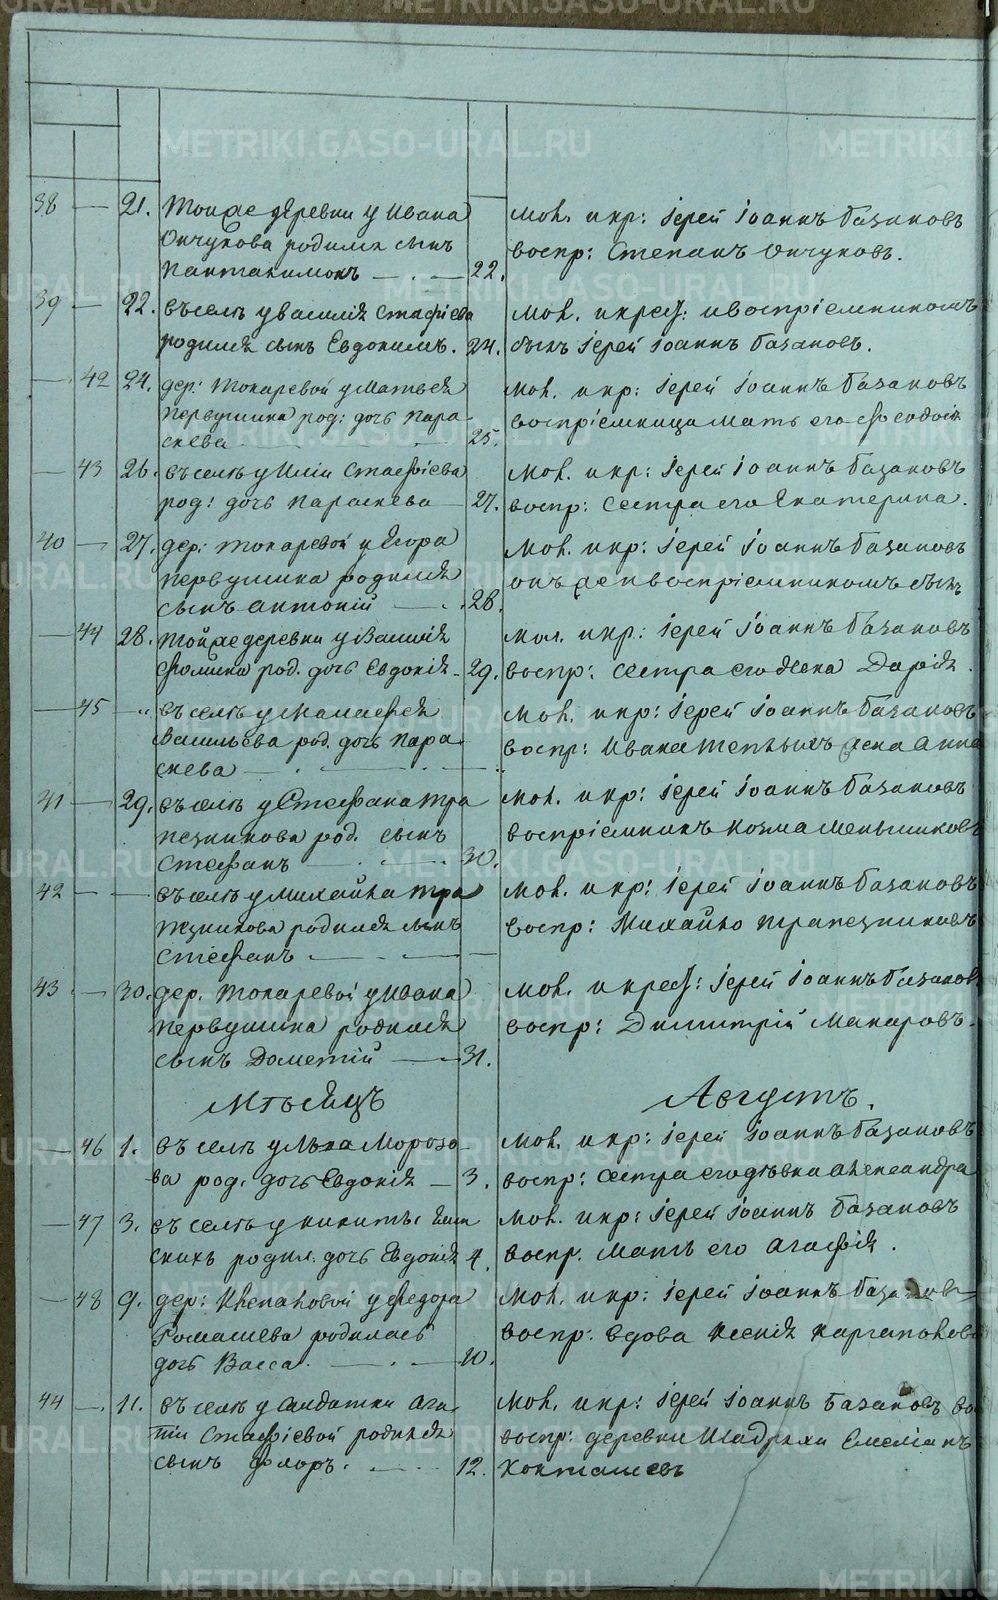 METRIKI.GASO-URAL.RU
38 — 21. Тойже деревни у Ивана
Окчукова родился сынъ
Пантелимонъ — 22.
мол. и кр: Іерей Іоаннъ Базановъ
воспр: Степанъ Окчуковъ.
39 — 22. въ селѣ у Василія Стафіева
родился сынъ Евдокимъ. 24.
мол. и крест: и воспріемникомъ
былъ Іерей Іоаннъ Базановъ.
— 42 24. дер: Токаревой у Матвея
Первушина род: дочь Пара-
скева 25.
мол. и кр: Іерей Іоаннъ Базановъ
воспріемница мать его Феодосія
— 43 26. въ селѣ у Иліи Стафіева
род: дочь Параскева 27.
мол. и кр: Іерей Іоаннъ Базановъ
воспр: сестра его Екатерина.
40 — 27. дер: Токаревой у Егора
Первушина родился
сынъ Антоній — 28.
мол. и кр: Іерей Іоаннъ Базановъ
онъ же и воспріемникомъ былъ
— 44 28. тойже деревни у Василія
Фомина род. дочь Евдокія — 29.
мол. и кр: Іерей Іоаннъ Базановъ
воспр: сестра его жена Дарія.
— 45 — " въ селѣ у
Васильева род. дочь Пара-
скева — "
мол. и кр: Іерей Іоаннъ Базановъ
воспр: Ивана жена Анна
41 — 29. въ селѣ у Стефана Тра
пезникова род. сынъ
Стефанъ — 30.
мол. и кр: Іерей Іоаннъ Базановъ
воспріемникъ Козма Меньшиковъ
42 — — въ селѣ у Михайла Тра
пезникова родился сынъ
Стефанъ — —
мол. и кр: Іерей Іоаннъ Базановъ
воспр: Михайло Трапезниковъ
43 — 30. дер. Токаревой у Ивана
Первушина родился
сынъ Дометій — 31.
мол. и крест: Іерей Іоаннъ Базановъ
воспр: Димитрій Макаровъ.
Мѣсяцъ Августъ.
— 46 1. въ селѣ у Льва Морозо-
ва род. дочь Евдокія — 3.
мол. и кр: Іерей Іоаннъ Базановъ
воспр: сестра его дѣвка Александра
— 47 3. въ селѣ у Никиты
скихъ родил. дочь Евдокія 4.
мол. и кр: Іерей Іоаннъ Базановъ
воспр. мать его Агафія.
— 48 9. дер: у Федора
Ромашева родилась
дочь Васса. — 10.
мол. и кр: Іерей Іоаннъ Базановъ
воспр: вдова Ксенія Каргаполова
44 — 11. въ селѣ у солдатки Ага-
піи Стафіевой родился
сынъ Флоръ. — 12.
мол. и кр: Іерей Іоаннъ Базановъ
воспр: деревни Шадрихи Емеліанъ